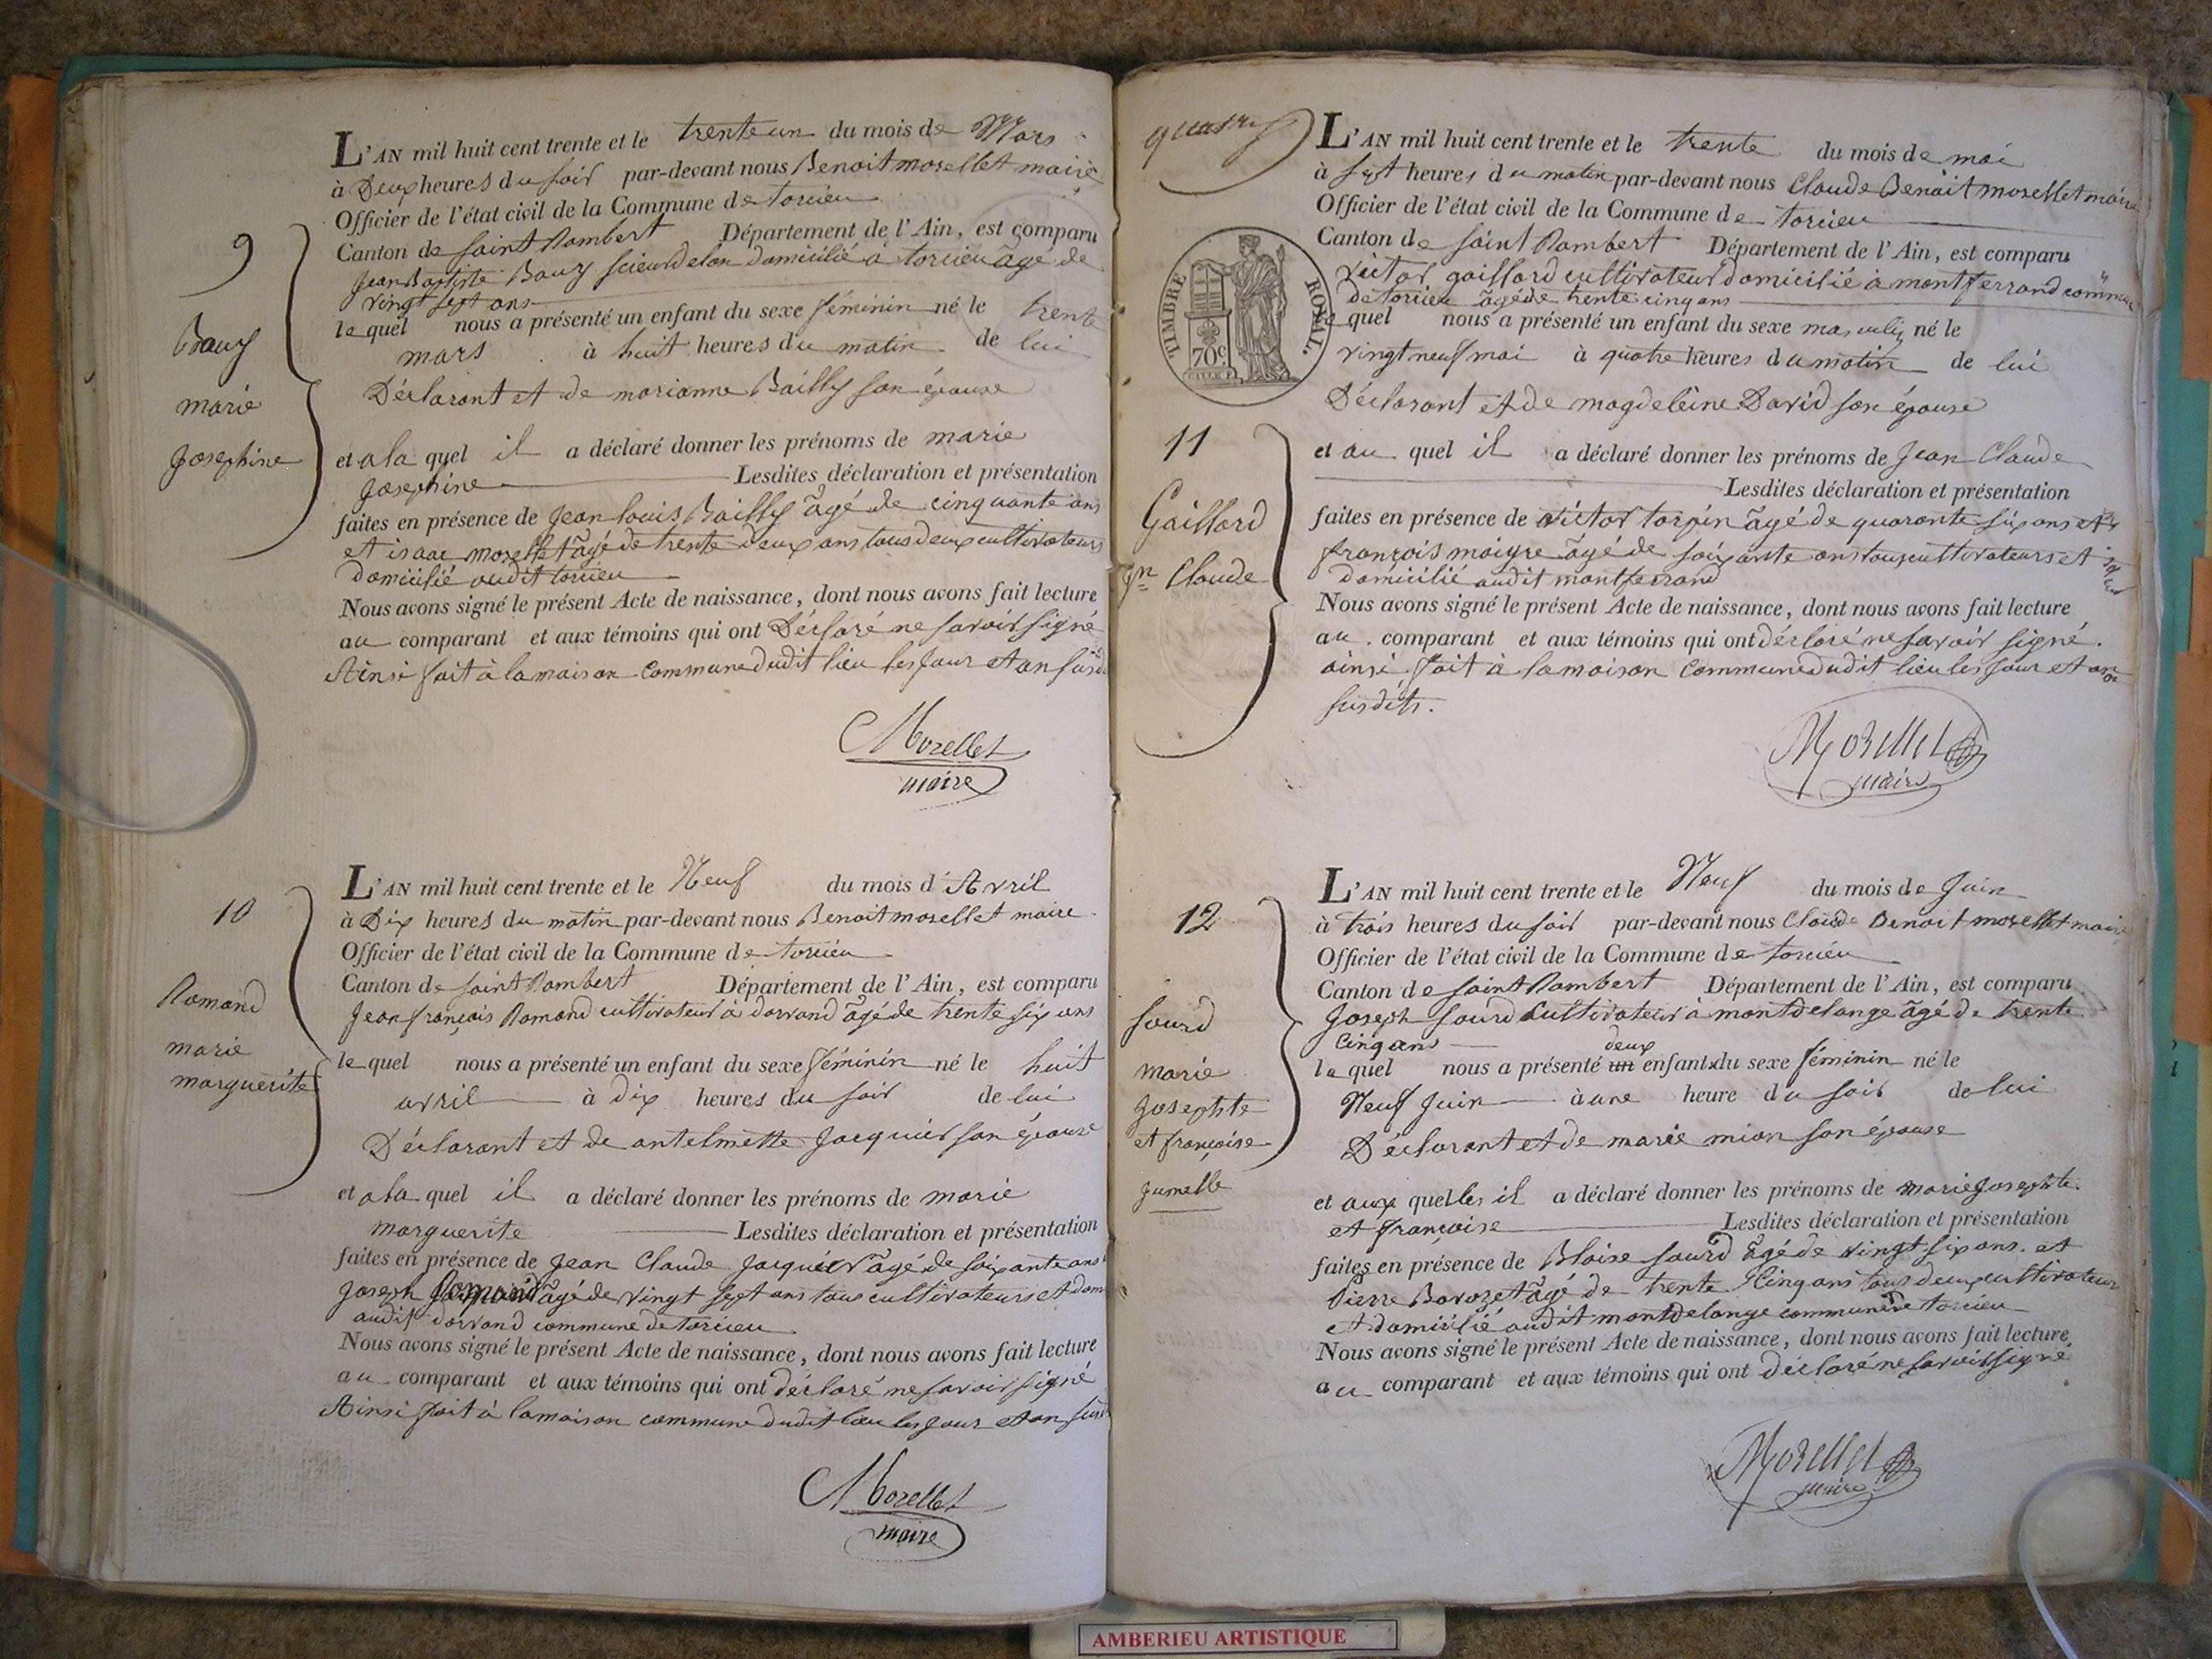 9
Bouz
marie
Josephine
L'AN mil huit cent trente et le trente un du mois de Mars
à Deux heures du soir par-devant nous Benoit morellet maire
Officier de l'état civil de la Commune de torcieu
Canton de saint Rambert Département de l'Ain, est comparu
Jean Baptiste Bouz scieur de lon domicilié à torcieu âgé de
vingt sept ans
lequel nous a présenté un enfant du sexe féminin né le trente
mars à huit heures du matin de lui
Déclarant et de marianne Bailly son épouse
et a la quel il a déclaré donner les prénoms de marie
Josephine Lesdites déclaration et présentation
faites en présence de Jean louis Bailly âgé de cinquante ans
et isaac morellet âgé de trente deux ans tous deux cultivateurs
domicilié audit torcieu
Nous avons signé le présent Acte de naissance, dont nous avons fait lecture
au comparant et aux témoins qui ont Déclaré ne savoir signé
Ainsi fait à la maison commune dudit lieu les jour et an susd
Morellet
maire
10
Romand
marie
marguerite
L'AN mil huit cent trente et le Neuf du mois d'Avril
à Dix heures du matin par-devant nous Benoit morellet maire
Officier de l'état civil de la Commune de torcieu
Canton de saint Rambert Département de l'Ain, est comparu
Jean françois Romand cultivateur à dorvand âgé de trente six ans
lequel nous a présenté un enfant du sexe féminin né le huit
avril à dix heures du soir de lui
Déclarant et de antelmette Jacquier son épouse
et a la quel il a déclaré donner les prénoms de marie
marguerite Lesdites déclaration et présentation
faites en présence de Jean Claude Jacquier âgé de soixante ans
Joseph Romand âgé de vingt sept ans tous cultivateurs et dom
audit dorvand commune de torcieu
Nous avons signé le présent Acte de naissance, dont nous avons fait lecture
au comparant et aux témoins qui ont déclaré ne savoir signé
Ainsi fait à la maison commune dudit lieu les jour et an susd
Morellet
maire
quatre
TIMBRE ROYAL.
70c
11
Gaillard
Jn Claude
L'AN mil huit cent trente et le trente du mois de mai
à sept heures du matin par-devant nous Claude Benoit morellet maire
Officier de l'état civil de la Commune de torcieu
Canton de saint Rambert Département de l'Ain, est comparu
victor gaillard cultivateur domicilié à montferrand commun
de torcieu âgé de trente cinq ans
lequel nous a présenté un enfant du sexe masculin né le
vingt neuf mai à quatre heures du matin de lui
Déclarant et de magdeleine David son épouse
et au quel il a déclaré donner les prénoms de Jean Claude
Lesdites déclaration et présentation
faites en présence de victor torpin âgé de quarante six ans et
françois maigre âgé de soixante ans tous cultivateurs et
domicilié audit montferrand
Nous avons signé le présent Acte de naissance, dont nous avons fait lecture
au comparant et aux témoins qui ont déclaré ne savoir signé.
ainsi fait à la maison commune dudit lieu les jour et an
susdits.
Morellet
maire
12
sourd
marie
Josephte
et françoise
Jumelle
L'AN mil huit cent trente et le Neuf du mois de Juin
à trois heures du soir par-devant nous Claude Benoit morellet maire
Officier de l'état civil de la Commune de torcieu
Canton de saint Rambert Département de l'Ain, est comparu
Joseph sourd Cultivateur à montdelange âgé de trente
Cinq ans
lequel nous a présenté un deux enfants du sexe féminin né le
Neuf Juin à une heure du soir de lui
Déclarant et de marie mion son épouse
et aux quelles il a déclaré donner les prénoms de marie Josephte
et françoise Lesdites déclaration et présentation
faites en présence de Blaise sourd âgé de vingt six ans et
Pierre Borozet âgé de trente Cinq ans tous deux cultivateur
et domicilié audit montdelange commune de torcieu
Nous avons signé le présent Acte de naissance, dont nous avons fait lecture
au comparant et aux témoins qui ont déclaré ne savoir signé
Morellet
maire
AMBERIEU ARTISTIQUE